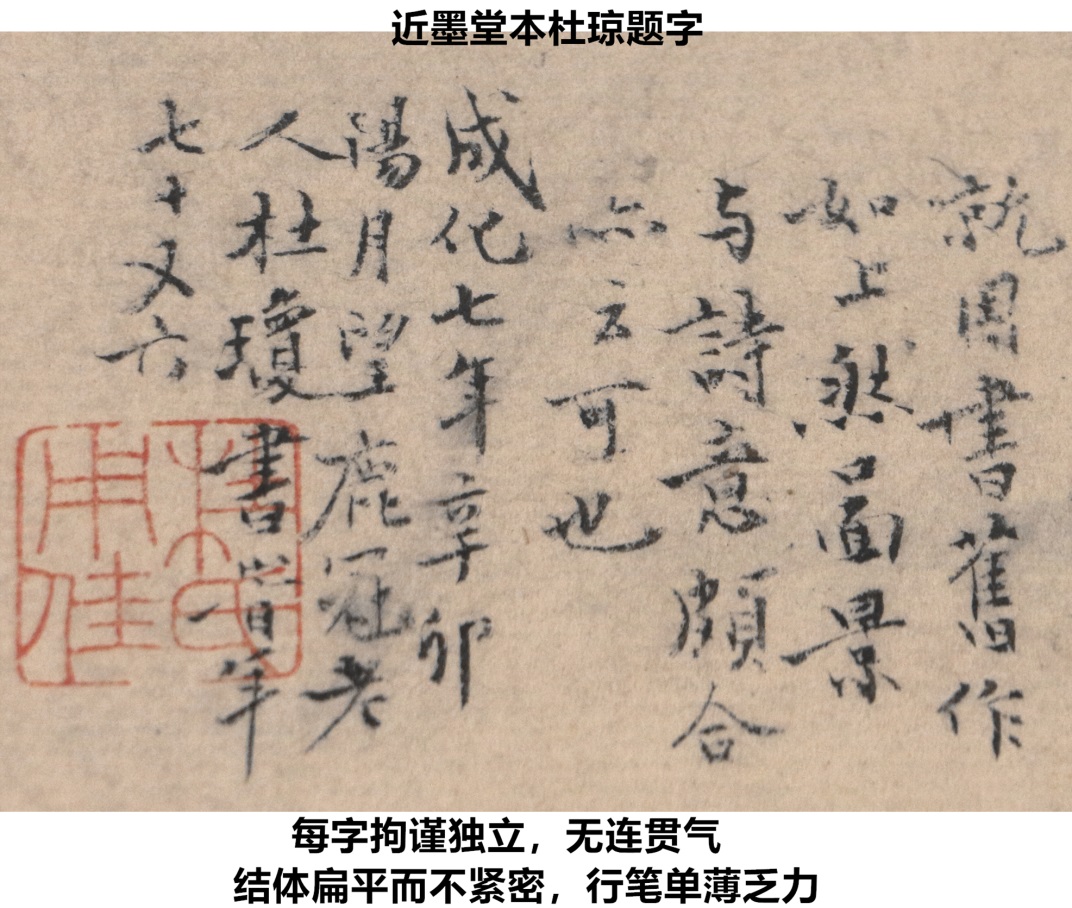 近墨堂本杜琼题字
就图书旧作
如上然昌面景
与詩意頗合
亦云可也
成化七年辛卯
陽月望鹿冠老
人杜瓊書旹年
七十又六
每字拘谨独立，无连贯气
结体扁平而不紧密，行笔单薄乏力